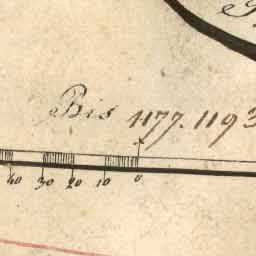 Bis 1177. 1193
40 30 20 10 0